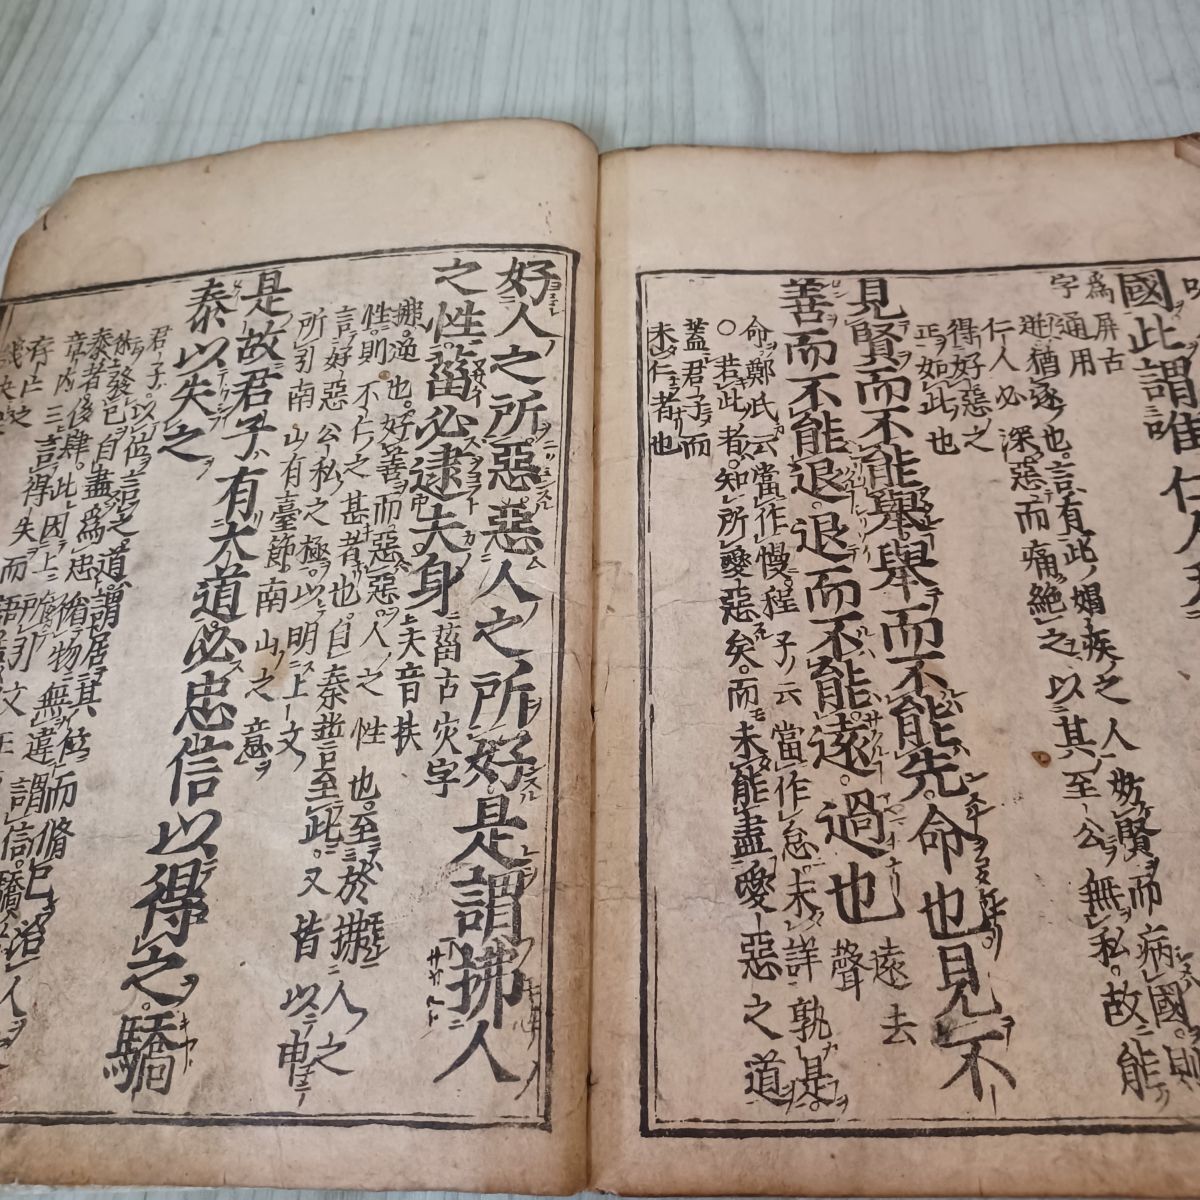 國此謂唯仁人
爲屏古
字通用
迸猶逐也言有此媢疾之人妨賢而病國則
仁人必深惡而痛絶之以其至公無私故能
得好惡之
正如此也
見賢而不能擧擧而不能先命也見不
善而不能退退而不能遠過也
遠去
聲
命鄭氏云當作慢程子云當作怠未詳孰是
○若此者知所愛惡矣而未能盡愛惡之道
蓋君子而
未仁者也
好人之所惡惡人之所好是謂拂人
之性菑必逮夫身
菑古灾字
夫音扶
拂逆也好善而惡惡人之性也至於拂人之
性則不仁之甚者也自秦誓至此又皆以申
言好惡公私之極以明上文
所引南山有臺節南山之意
是故君子有大道必忠信以得之驕
泰以失之
君子以位言之道謂居其位而脩己治人
發己自盡爲忠循物無違謂信驕
泰者侈肆此因上所引文王
章内三言得失而語
存亡之
幾決